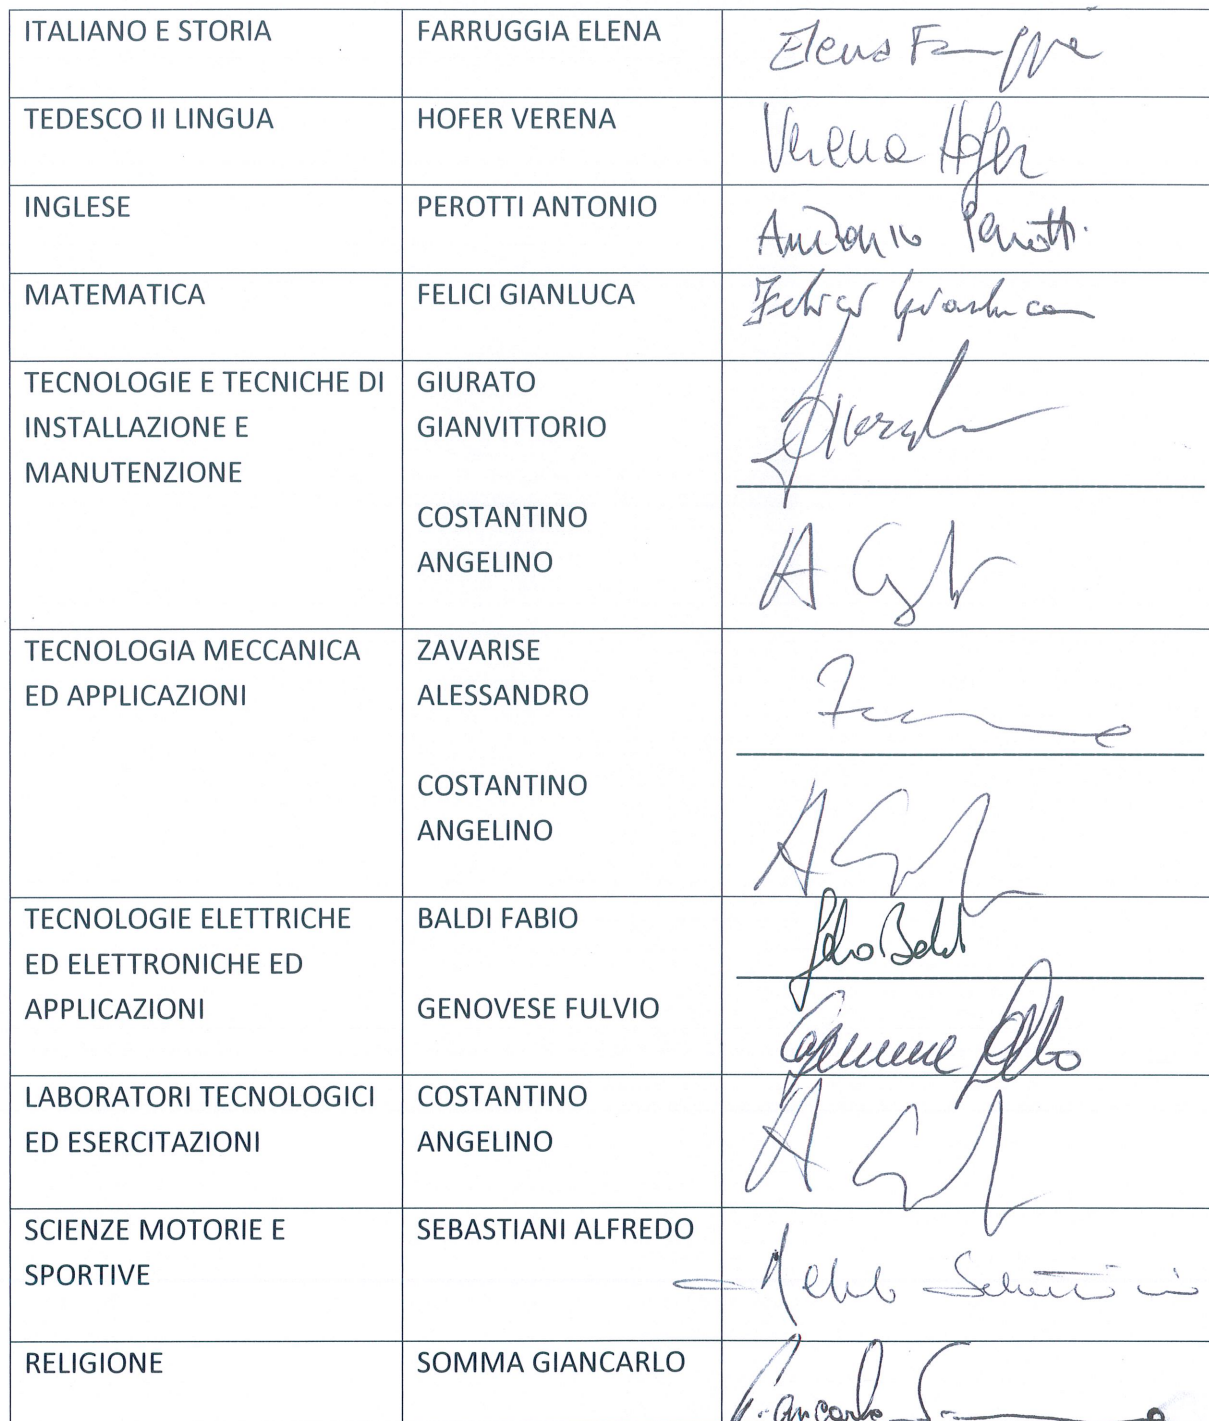 ITALIANO E STORIA
FARRUGGIA ELENA
Elena Farruggia
TEDESCO II LINGUA
HOFER VERENA
Verena Hofer
INGLESE
PEROTTI ANTONIO
Antonio Perotti
MATEMATICA
FELICI GIANLUCA
Felici Gianluca
TECNOLOGIE E TECNICHE DI
INSTALLAZIONE E
MANUTENZIONE
GIURATO
GIANVITTORIO
COSTANTINO
ANGELINO
TECNOLOGIA MECCANICA
ED APPLICAZIONI
ZAVARISE
ALESSANDRO
COSTANTINO
ANGELINO
TECNOLOGIE ELETTRICHE
ED ELETTRONICHE ED
APPLICAZIONI
BALDI FABIO
Fabio Baldi
GENOVESE FULVIO
LABORATORI TECNOLOGICI
ED ESERCITAZIONI
COSTANTINO
ANGELINO
SCIENZE MOTORIE E
SPORTIVE
SEBASTIANI ALFREDO
RELIGIONE
SOMMA GIANCARLO
Giancarlo